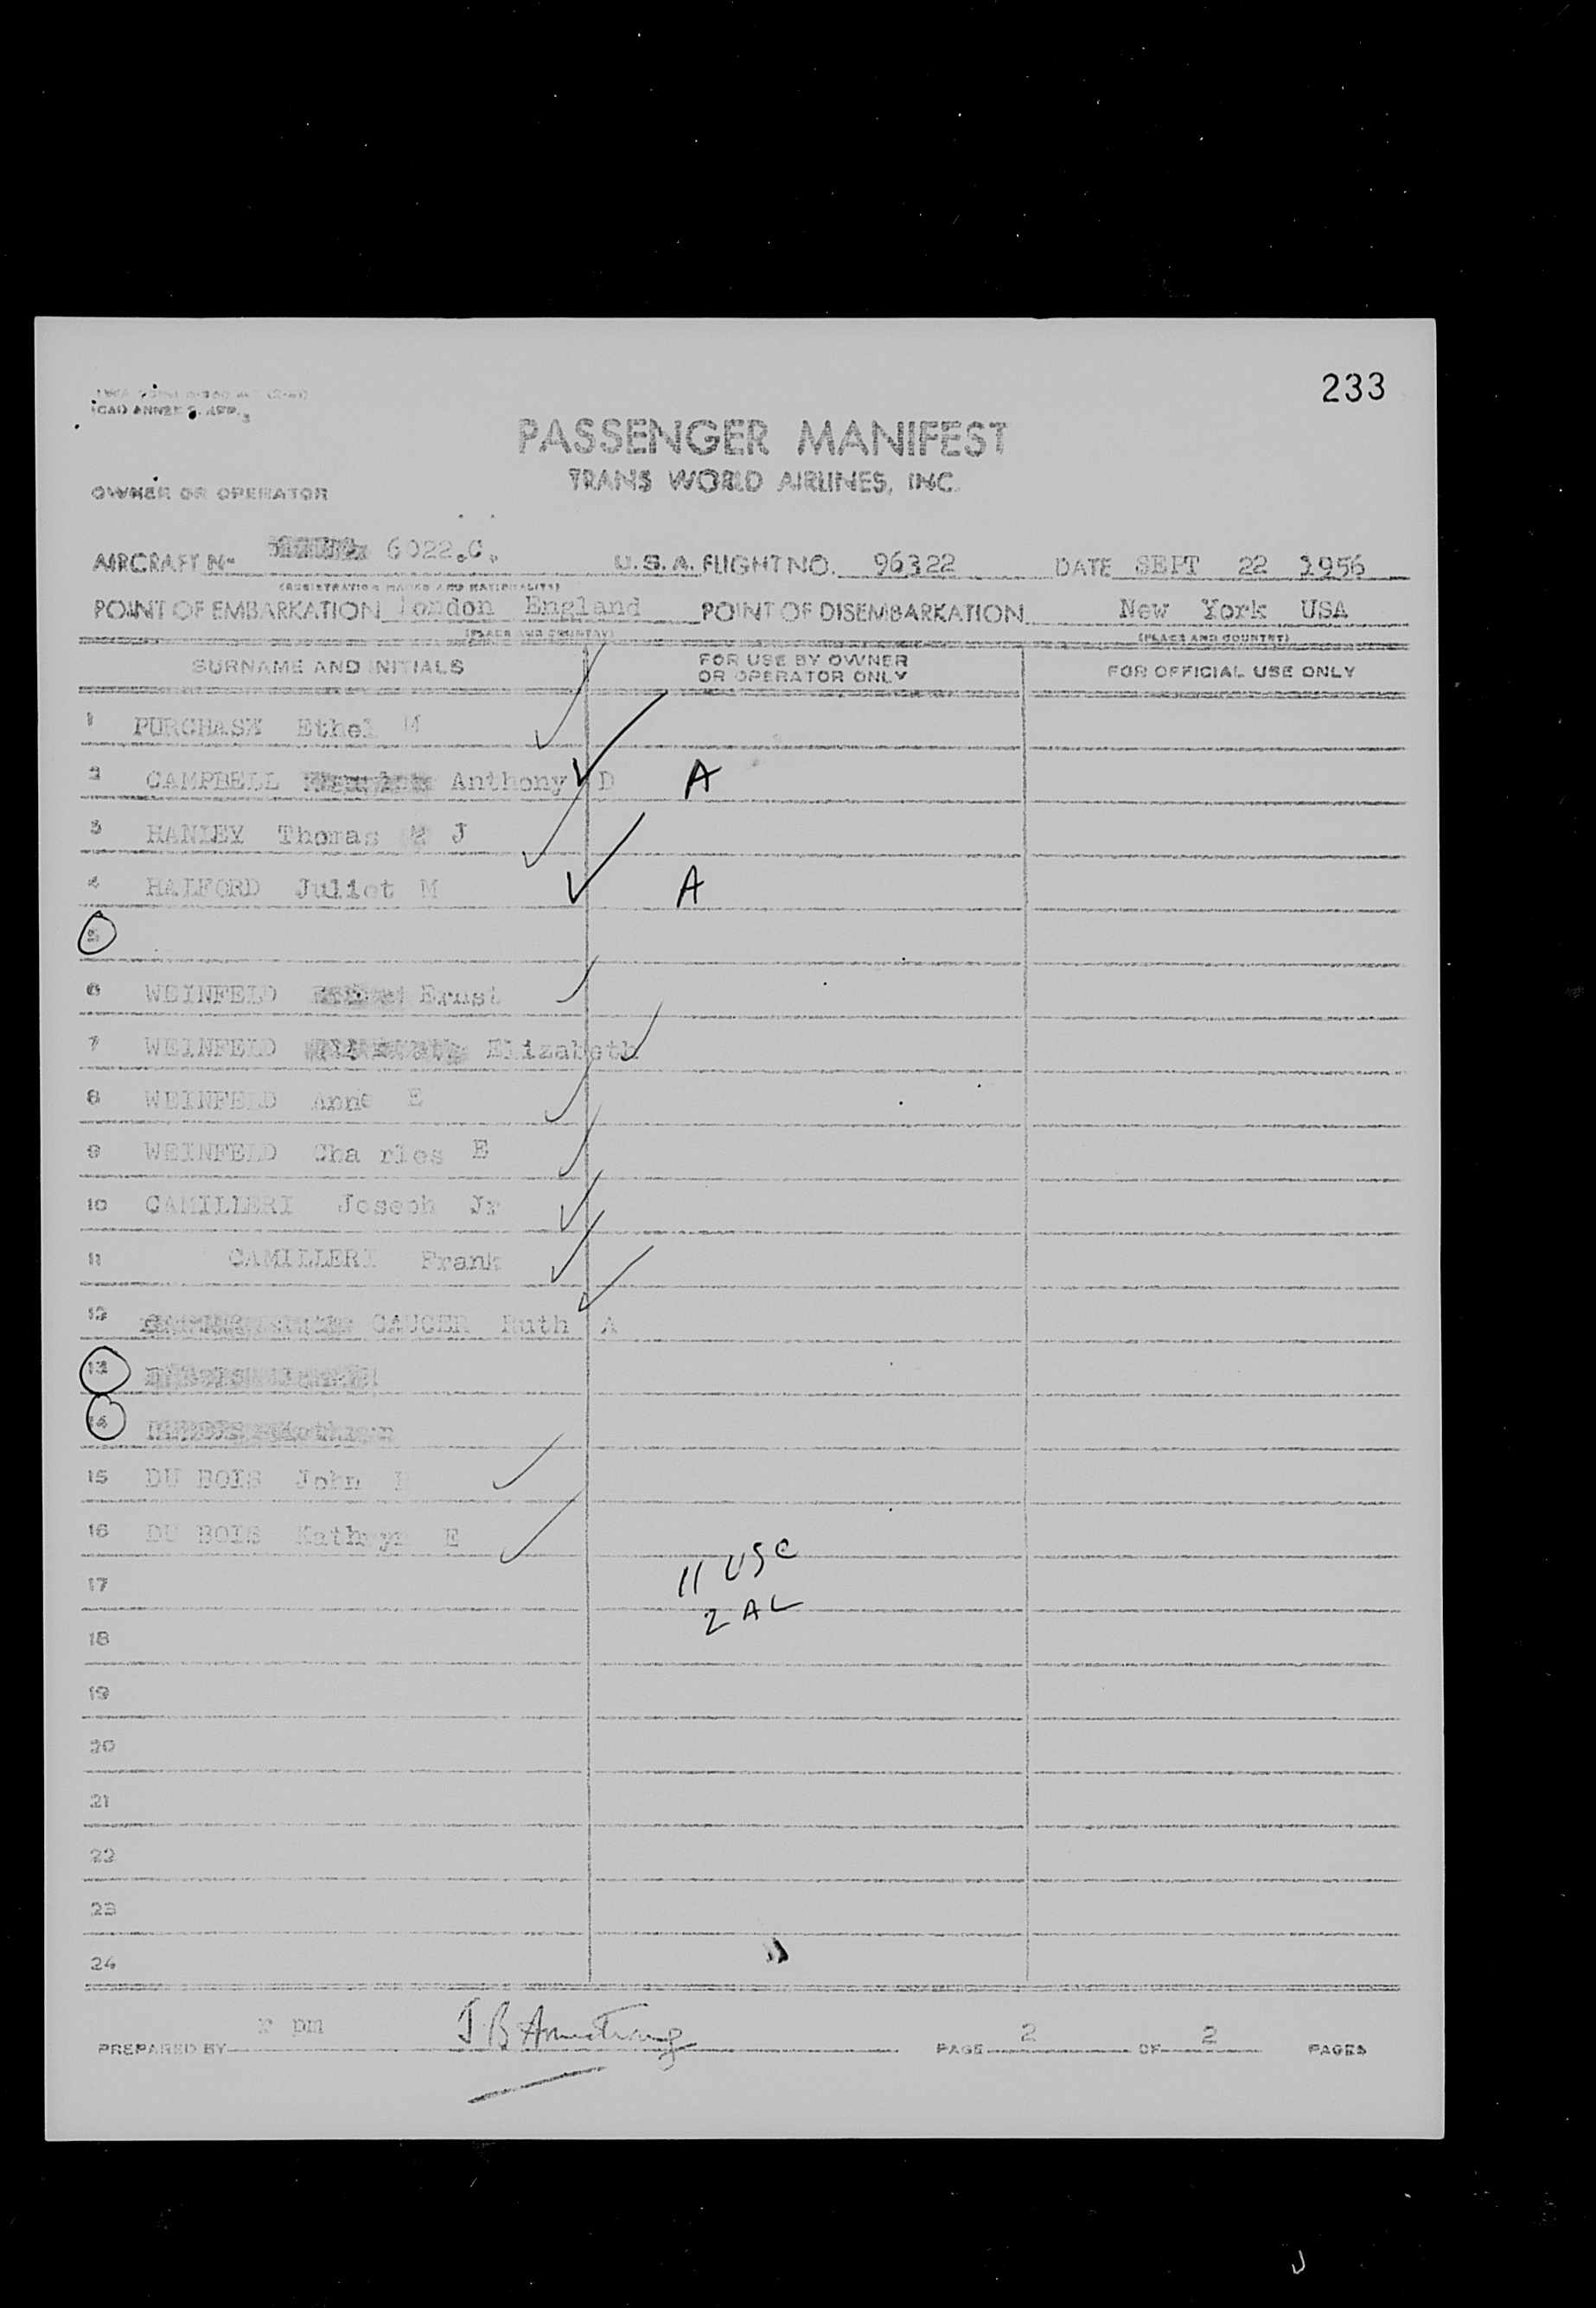 233
ICAO ANNEX 9. APP. 3
PASSENGER MANIFEST
TRANS WORLD AIRLINES, INC.
OWNER OR OPERATOR
AIRCRAFT No 6022.C. U.S.A. FLIGHT NO. 96322 DATE SEPT 22 1956
(REGISTRATION MARKS AND NATIONALITY)
POINT OF EMBARKATION London England POINT OF DISEMBARKATION New York USA
(PLACE AND COUNTRY) (PLACE AND COUNTRY)
SURNAME AND INITIALS FOR USE BY OWNER OR OPERATOR ONLY FOR OFFICIAL USE ONLY
1 PURCHASE Ethel M
2 CAMPBELL Anthony D A
3 HANLEY Thomas J
4 HALFORD Juliet M A
5
6 WEINFELD Ernst
7 WEINFELD Elizabeth
8 WEINFELD Anne E
9 WEINFELD Cha rles E
10 CAMILLERI Joseph Jr
11 CAMILLERI Frank
12 GAUGER Ruth A
13
14
15 DU BOIS John
16 DU BOIS Kathryn E
11 USC
17
2 AL
18
19
20
21
22
23
24
PREPARED BY J B Armstrong PAGE 2 OF 2 PAGES